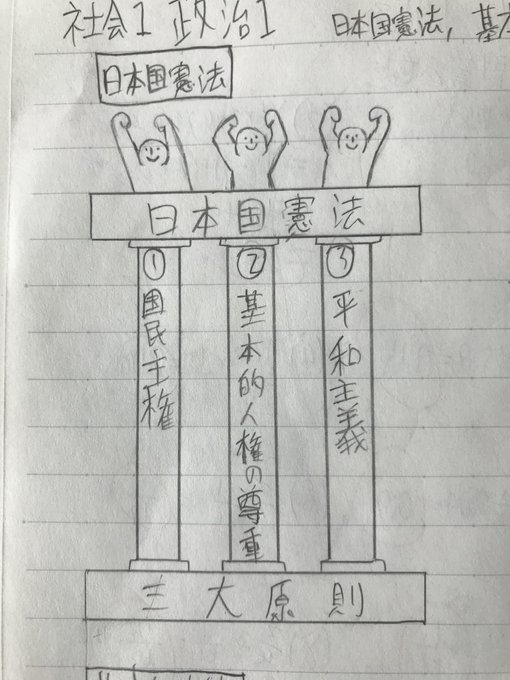 社会1 政治1
日本国憲法, 基本
日本国憲法
日本国憲法
① 国民主権
② 基本的人権の尊重
③ 平和主義
三大原則